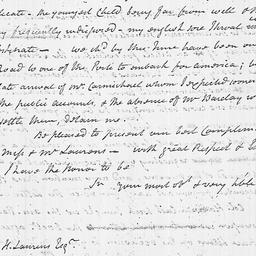 licate - the youngest Child being far from well & M
ry frequently indisposed - my english sore throat
- we shd. by this time have been on
Road to one of the Ports to embark for America; b
late arrival of Mr. Carmichael whom I expected
the public accounts, & the absence of Mr Barclay
settle them, detain me.
Be pleased to present our best Complim
Miss & Mr Laurens - with great Respect & E
I have the Honor to be
Sir your most obt. & very hble
H. Laurens Esqr.